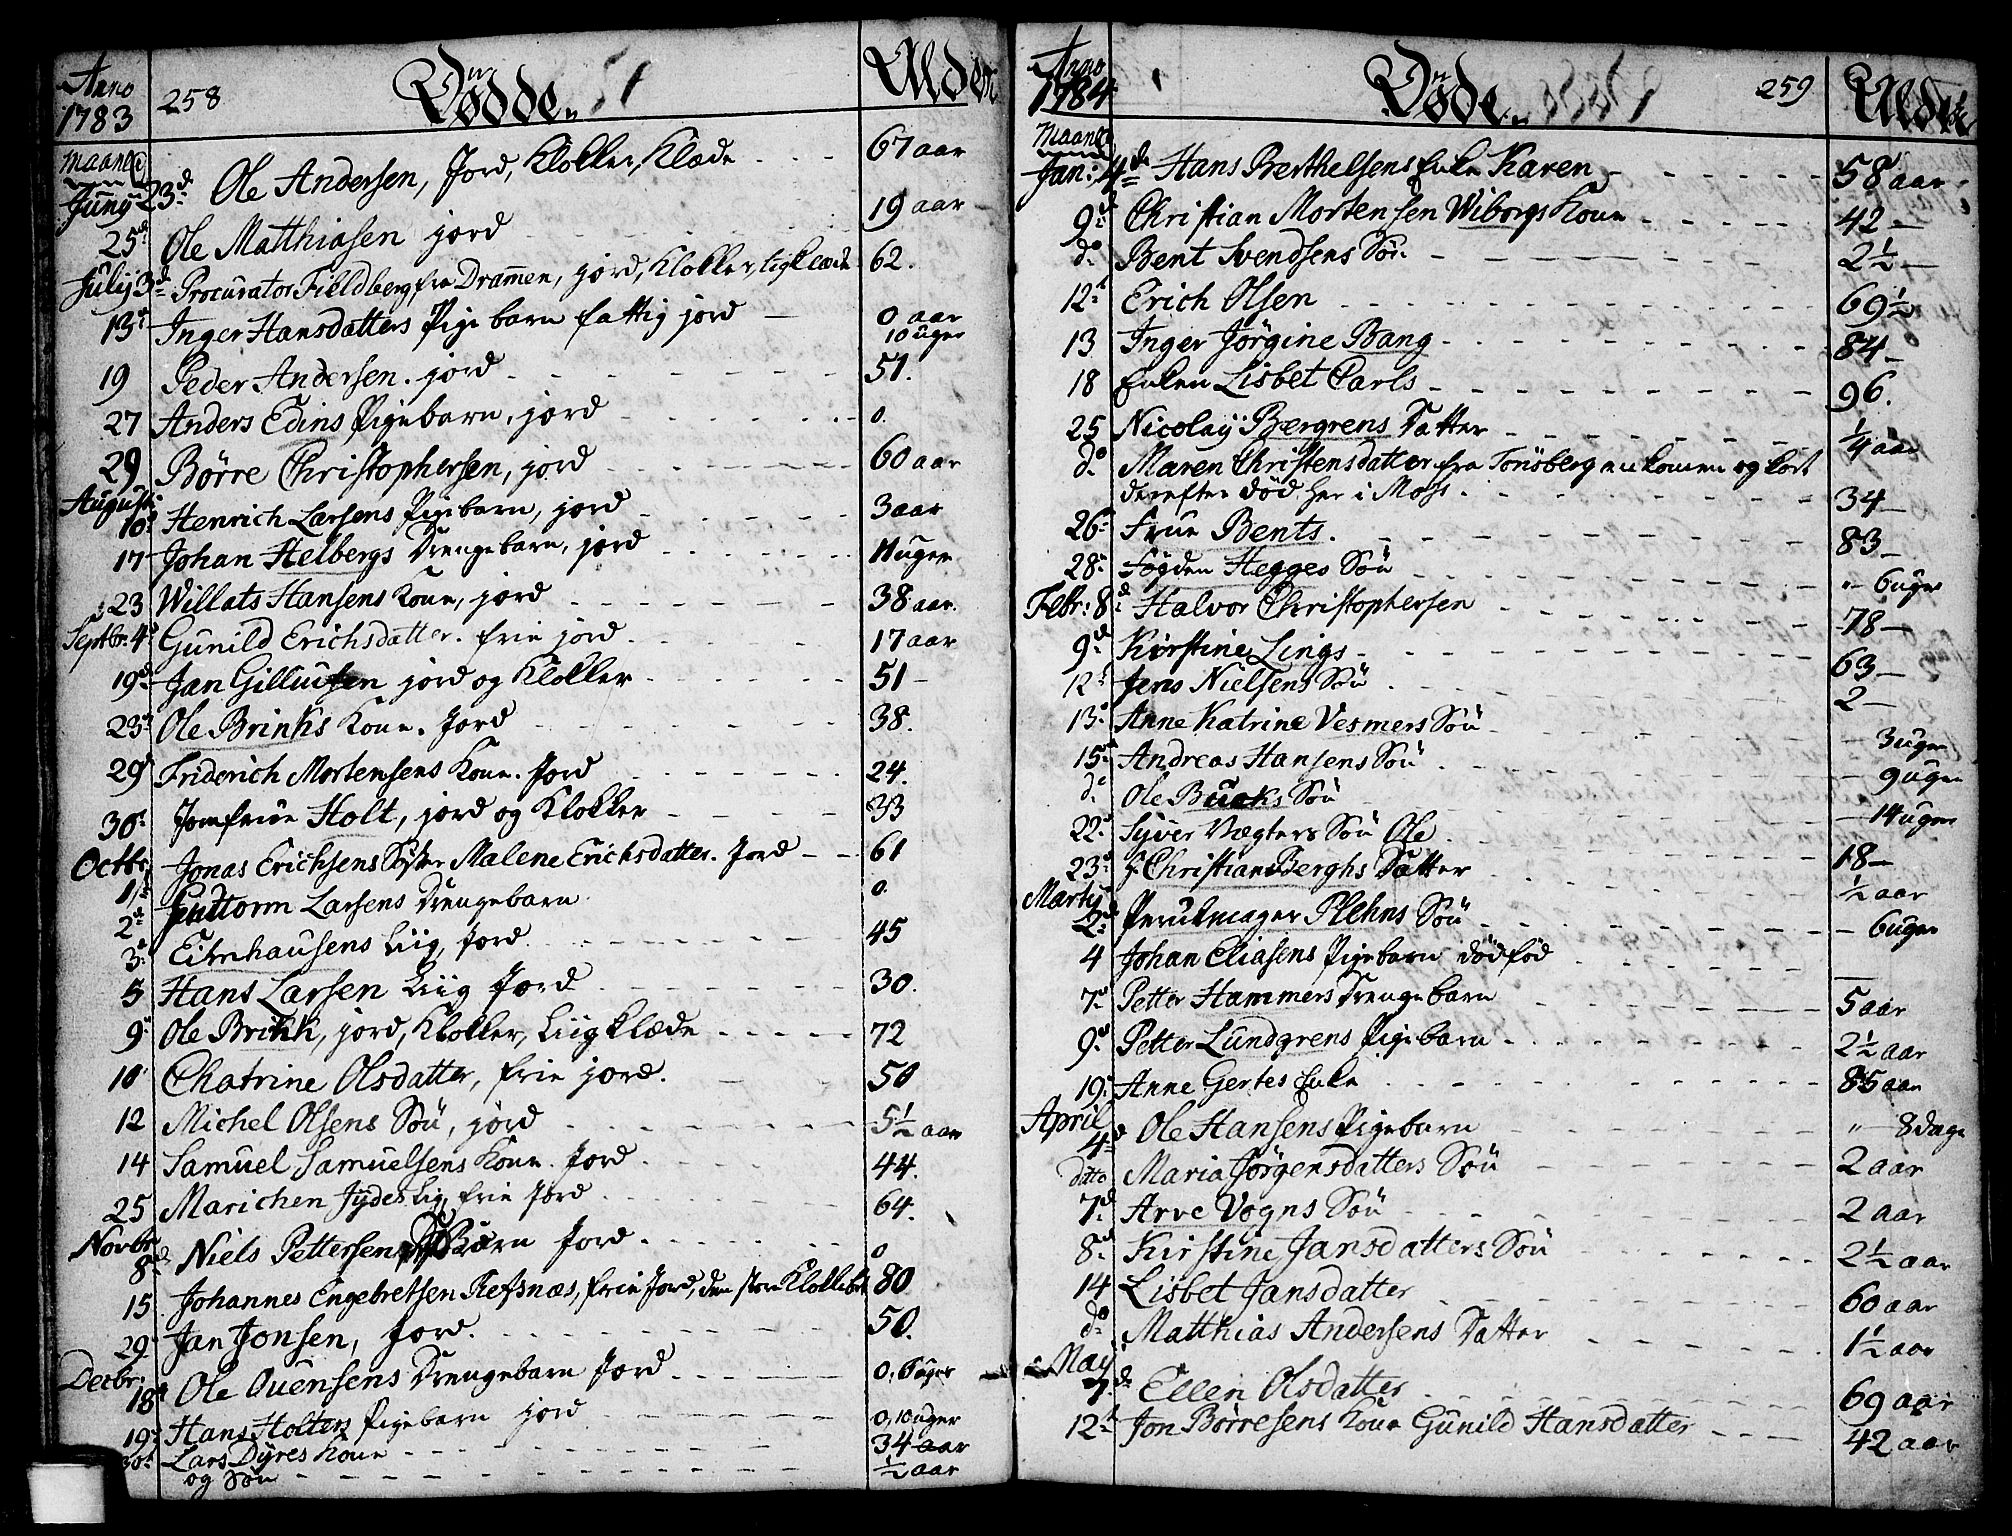 Anno 1783
258
Dødde
Alder
Maaned
Junij 23d Ole Andersen, Jord, Klokker, Klæde 67 aar
25d Ole Matthiasen jord 19 aar
Julij 3d Procurator Fieldberg fra Dramen, jord, Klokker, ligklæde 62.
13d Inger Hansdatters Pige barn fattig jord 0 aar 10 uger
19 Peder Andersen. jord 51.
27 Anders Edins Pigebarn, jord 0.
29 Børre Christophersen, jord 60 aar
Augusti
10d Henrich Larsens Pigebarn, jord 3 aar
17 Johan Helbergs Drengebarn, jord 11 uger
23 Willats Hansens Kone, jord 38 aar.
Septbr: 4d Gunild Erichsdatter. frie jord 17 aar
19d Jan Gilluisen jord og Klokker 51
23d Ole Brinks Kone. Jord 38.
29d Friderich Mortensens Kone. Jord 24.
30d Jomfrue Holt, jord og Klokker 33
Octbr
1d Jonas Erichsens Syster Malene Erichsdatter. Jord 61
2d Guttorm Larsens Drengebarn 0.
3d Eitenhausens Liig, Jord 45
5 Hans Larsen Liig Jord 30.
9d Ole Brikk, jord, Klokker, Liigklæde 72
10 Chatrine Olsdatter, frie jord. 50
12 Michel Olsens Sön, jord 5½ aar
14 Samuel Samuelsens Kone. Jord 44.
25 Marichen Jydes Lig frie Jord 64.
Novbr
8d Niels Pettersens Barn Jord 0
15 Johannes Engebretsen Refsnæs, frie Jord, den store Klokke 80
29 Jan Jonsen, Jord. 50.
Decbr:
18d Ole Ouensens Drengebarn Jord 0, 6 uger
19d Hans Holters Pigebarn jord 0, 10 uger
30d Lars Dyres Kone 34 aar
og Sön ½ aar
Anno 1784
Døde
259
Alder
Maaned
Jan: 4de Hans Berthelsens Enke Karen 58 aar
9d Christian Mortensen Wiborgs Kone 42
do Bent Svendsens Sön 2½
12d Erich Olsen 69½
13 Inger Jörgine Bang 84
18 Enken Lisbet Carls 96.
25 Nicolaij Bergrens Datter ¼ aar
do Maren Christensdatter fra Tonsberg ankomen og kort
derefter död her i Moss. 34
26d Frue Bents. 83
28d Fogden Hegges Sön " 6 uger
Febr: 8d Halvor Christophersen 78
9d Kirstine Lings 63
12d Jens Nielsens Sön 2
13d Anne Katrine Vesmers Sön 3 uger
15d Andreas Hansens Sön 9 uger
do Ole Buaks Sön 14 uger
22d Syver Vægters Sön Ole 18
23d Christian Berghs Datter ½ aar
Martij
2d Perukmager Plehns Sön 6 uger
4 Johan Eliasens Pigebarn dödfød
7d Petter Hammers Drengebarn 5 aar
9d Petter Lundgrens Pigebarn 2½ aar
19d Anne Gertes Enke 85 aar
April
4d Ole Hansens Pigebarn " 8 dage
ditto Maria Jörgensdatters Sön 2 aar
7d Arve Vogns Sön 2 aar
8d Kirstine Jansdatters Sön 2½ aar
14 Lisbet Jansdatter 60 aar
do Matthias Andersens Datter 1½ aar
May
7de Ellen Olsdatter 69 aar
12d Jon Börresens Kone Gunild Hansdatter 42 aar